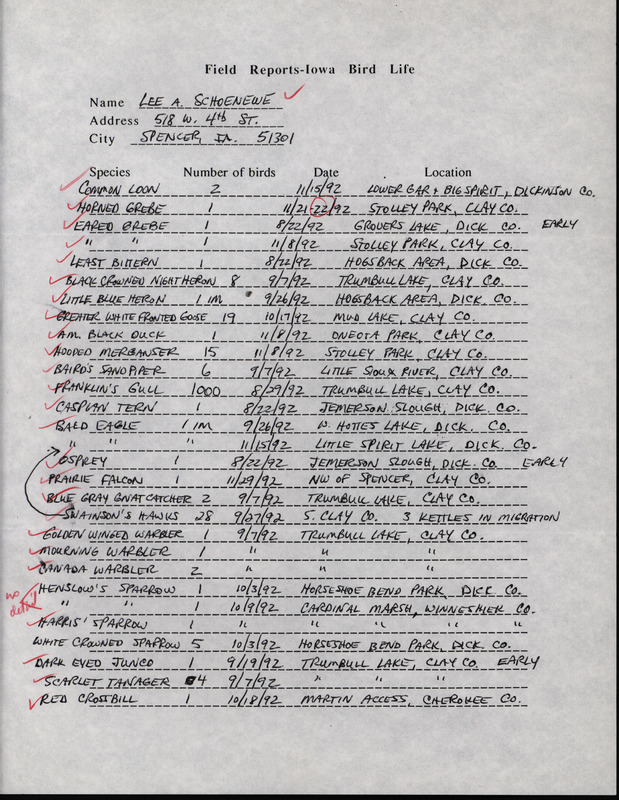 Field Reports-Iowa Bird Life
Name LEE A. SCHOENEWE
Address 518 W. 4th ST.
City SPENCER, IA. 51301
Species Number of birds Date Location
COMMON LOON 2 11/15/92 LOWER GAR + BIG SPIRIT, DICKINSON CO.
HORNED GREBE 1 11/21-22/92 STOLLEY PARK, CLAY CO.
EARED GREBE 1 8/22/92 GROVERS LAKE, DICK. CO. EARLY
" " 1 11/8/92 STOLLEY PARK, CLAY CO.
LEAST BITTERN 1 8/22/92 HOGSBACK AREA, DICK CO.
BLACK CROWNED NIGHT HERON 8 9/7/92 TRUMBULL LAKE, CLAY CO.
LITTLE BLUE HERON 1 IM 9/26/92 HOGSBACK AREA, DICK. CO.
GREATER WHITE FRONTED GOOSE 19 10/17/92 MUD LAKE, CLAY CO.
AM. BLACK DUCK 1 11/8/92 ONEOTA PARK, CLAY CO.
HOODED MERGANSER 15 11/8/92 STOLLEY PARK, CLAY CO.
BAIRD'S SANDPIPER 6 9/7/92 LITTLE SIOUX RIVER, CLAY CO.
FRANKLIN'S GULL 1000 8/29/92 TRUMBULL LAKE, CLAY CO.
CASPIAN TERN 1 8/22/92 JEMERSON SLOUGH, DICK. CO.
BALD EAGLE 1 IM 9/26/92 W. HOTTES LAKE, DICK. CO.
" " " 11/15/92 LITTLE SPIRIT LAKE, DICK. CO.
OSPREY 1 8/22/92 JEMERSON SLOUGH, DICK. CO. EARLY
PRAIRIE FALCON 1 11/29/92 NW OF SPENCER, CLAY CO.
BLUE GRAY GNATCATCHER 2 9/7/92 TRUMBULL LAKE, CLAY CO.
SWAINSON'S HAWKS 28 9/27/92 S. CLAY CO. 3 KETTLES IN MIGRATION
GOLDEN WINGED WARBLER 1 9/7/92 TRUMBULL LAKE, CLAY CO.
MOURNING WARBLER 1 " " "
CANADA WARBLER 2 " " "
HENSLOW'S SPARROW 1 10/3/92 HORSESHOE BEND PARK, DICK CO.
no detail " " 1 10/9/92 CARDINAL MARSH, WINNESHIEK CO.
HARRIS' SPARROW 1 " " " " "
WHITE CROWNED SPARROW 5 10/3/92 HORSESHOE BEND PARK, DICK. CO.
DARK EYED JUNCO 1 9/19/92 TRUMBULL LAKE, CLAY CO. EARLY
SCARLET TANAGER 4 9/7/92 " " "
RED CROSSBILL 1 10/18/92 MARTIN ACCESS, CHEROKEE CO.